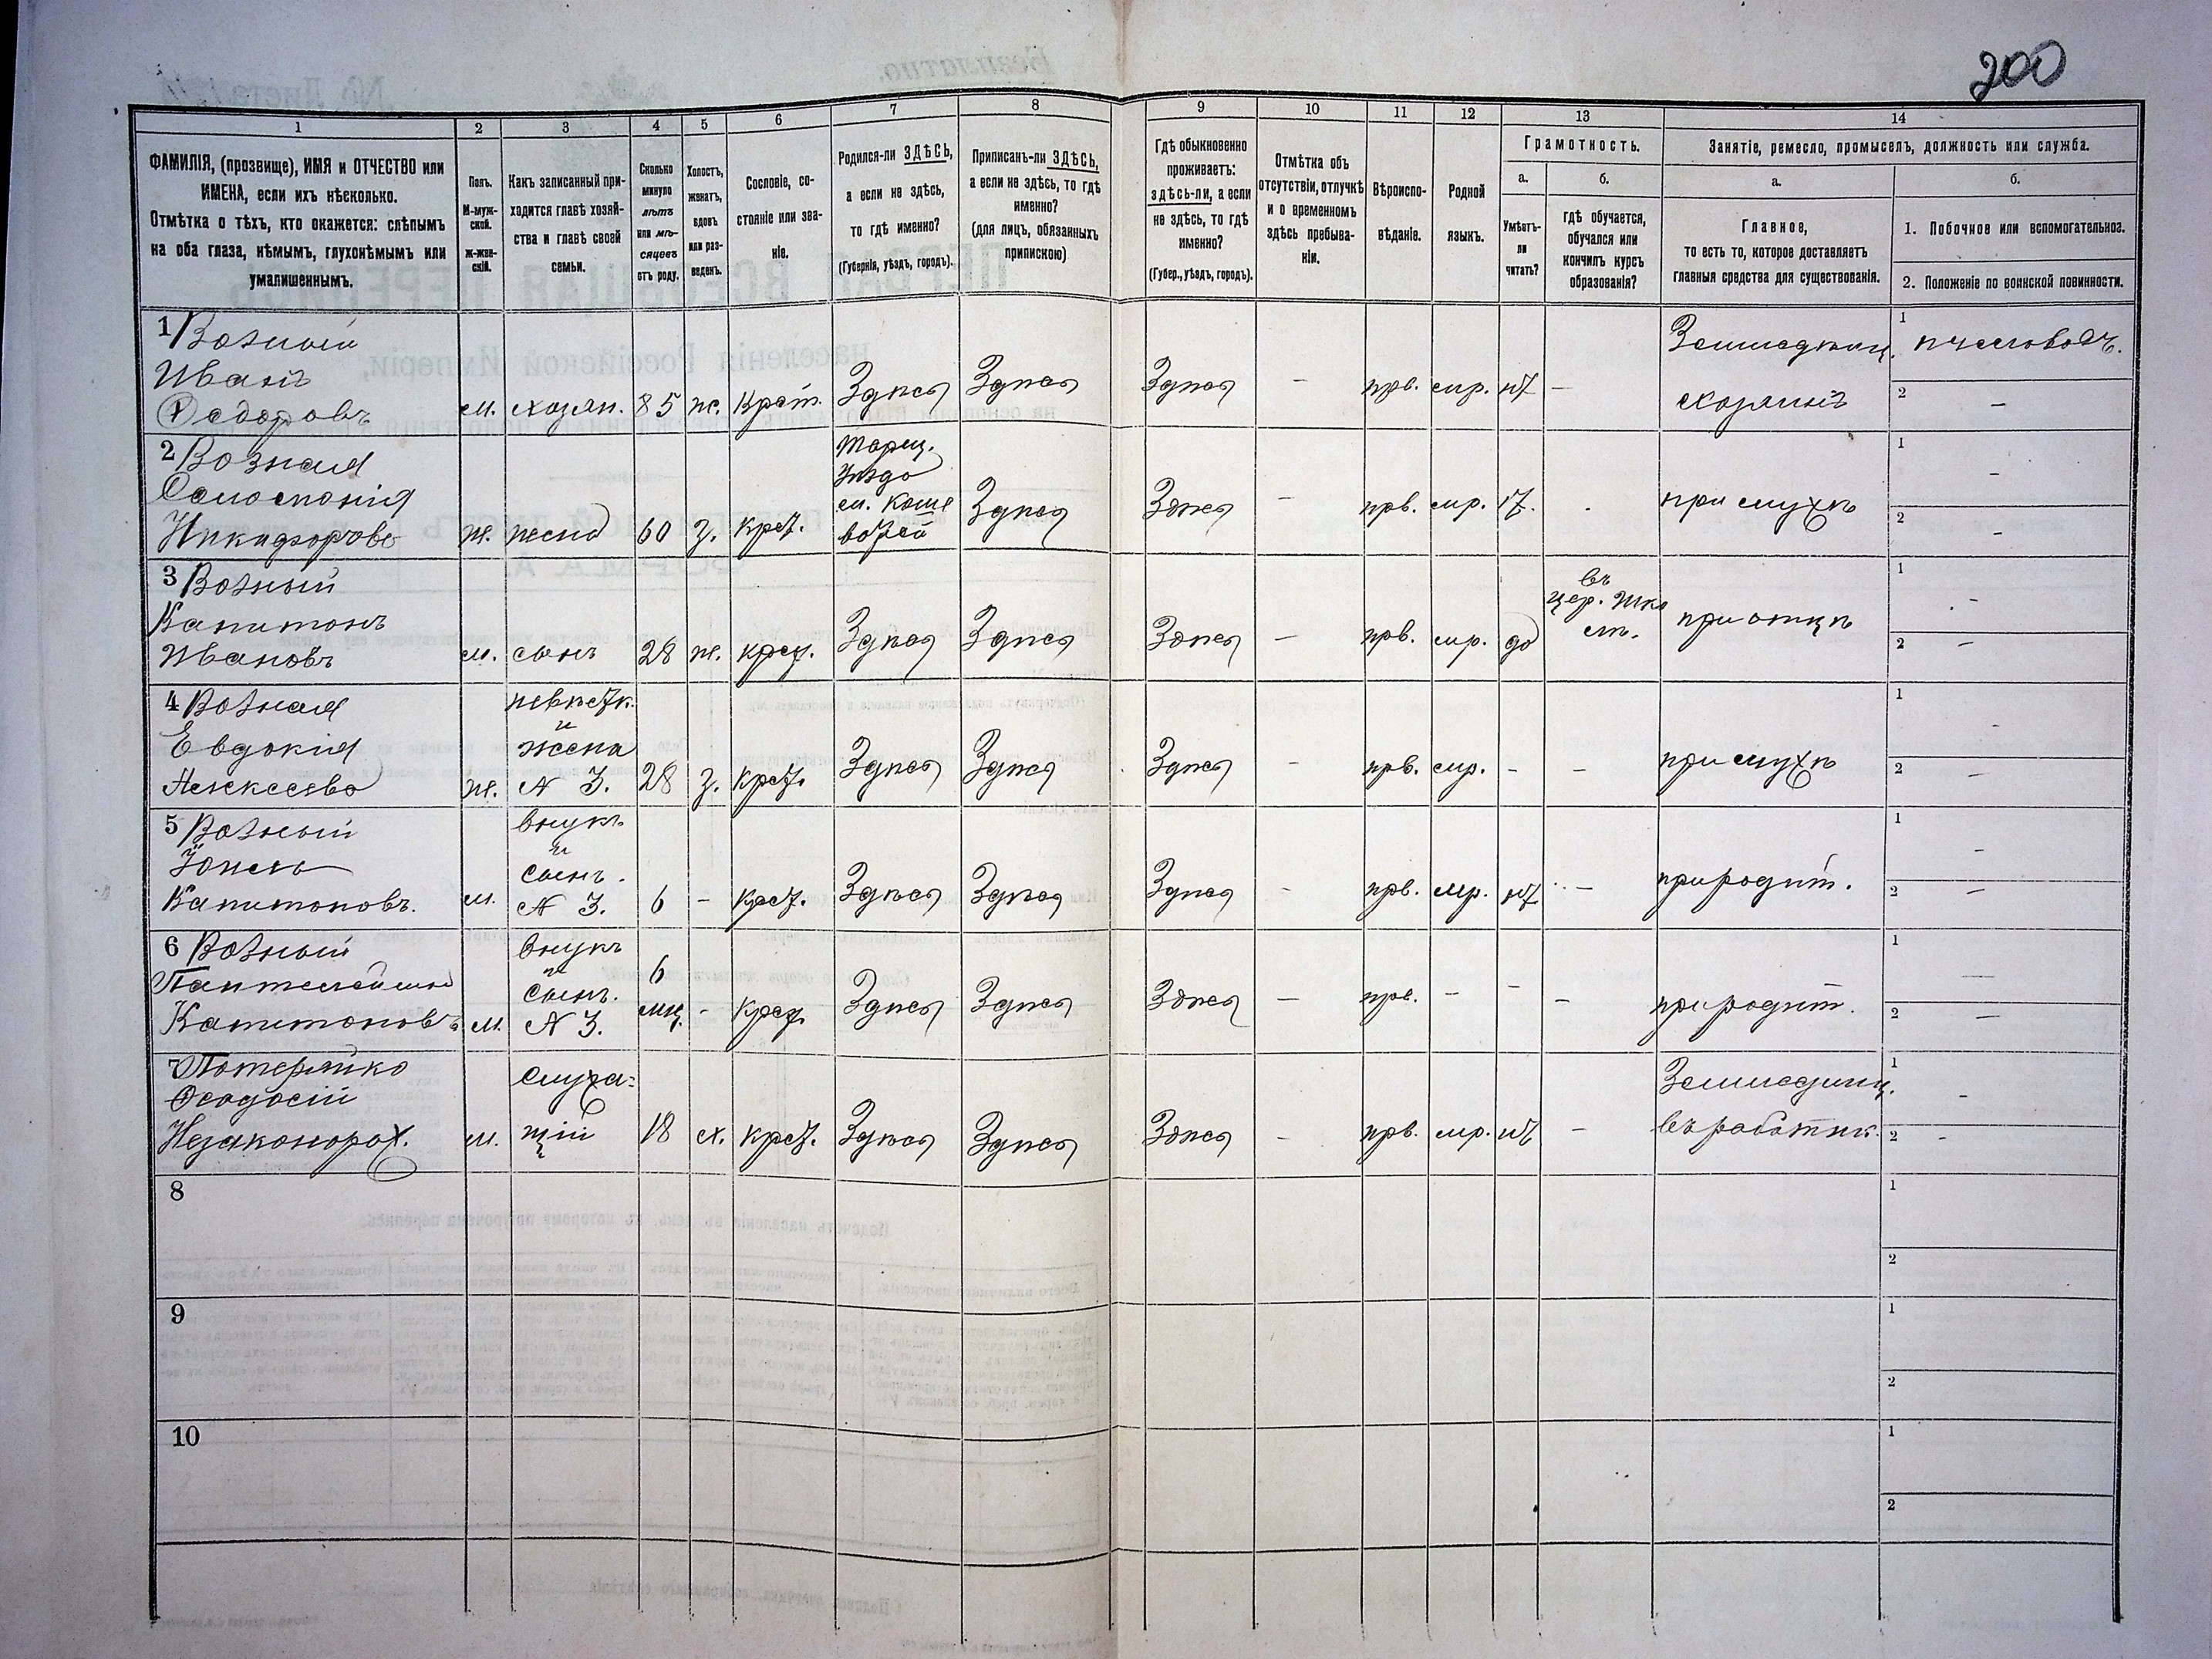 200
1
2
3
4
5
6
7
8
9
10
11
12
13
14
ФАМИЛІЯ, (прозвище), ИМЯ и ОТЧЕСТВО или
ИМЕНА, если ихъ нѣсколько.
Отмѣтка о тѣхъ, кто окажется: слѣпымъ
на оба глаза, нѣмымъ, глухонѣмымъ или
умалишеннымъ.
Полъ.
М-муж-
ской.
ж-жен-
скій.
Какъ записанный при-
ходится главѣ хозяй-
ства и главѣ своей
семьи.
Сколько
минуло
лѣтъ
или мѣ-
сяцевъ
отъ роду.
Холостъ,
женатъ,
вдовъ
или раз-
веденъ.
Сословіе, со-
стояніе или зва-
ніе.
Родился-ли ЗДѢСЬ,
а если не здѣсь,
то гдѣ именно?
(Губернія, уѣздъ, городъ).
Приписанъ-ли ЗДѢСЬ,
а если не здѣсь, то гдѣ
именно?
(для лицъ, обязанныхъ
припискою)
Гдѣ обыкновенно
проживаетъ:
здѣсь-ли, а если
не здѣсь, то гдѣ
именно?
(Губер., уѣздъ, городъ).
Отмѣтка объ
отсутствіи, отлучкѣ
и о временномъ
здѣсь пребыва-
ніи.
Вѣроиспо-
вѣданіе.
Родной
языкъ.
Грамотность.
а.
Умѣетъ-
ли
читать?
б.
гдѣ обучается,
обучался или
кончилъ курсъ
образованія?
Занятіе, ремесло, промыселъ, должность или служба.
а.
Главное,
то есть то, которое доставляетъ
главныя средства для существованія.
б.
1. Побочное или вспомогательное.
2. Положеніе по воинской повинности.
1 Возный
Иванъ
Федоровъ
м. хозяи. 85 ж. Крест. Здѣсь Здѣсь Здѣсь — прв. мр. нѣт —
Земледѣлец.
хозяинъ
1 пчеловодъ.
2 —
2 Возная
Соломонія
Никифорова
ж. жена 60 з. Крест.
уѣзда
Здѣсь Здѣсь — прв. мр.
при мужѣ
1 —
2 —
3 Возный
Капитонъ
Ивановъ
м. сынъ 28 ж. крест. Здѣсь Здѣсь Здѣсь — прв. мр. да
въ
цер. шко
при отцѣ
1 —
2 —
4 Возная
Евдокія
Алексѣева
ж.
невѣстк.
и
жена
N 3. 28 з. Крест. Здѣсь Здѣсь Здѣсь — прв. мр. — —
при мужѣ
1 —
2 —
5 Возный
Капитоновъ.
м.
внукъ
и
сынъ.
N 3. 6 — Крест. Здѣсь Здѣсь Здѣсь — прв. мр. нѣт —
при родит.
1 —
2 —
6 Возный
Пантелеймон
Капитоновъ
м.
внукъ
и
сынъ.
N 3.
6
мц. — Крест. Здѣсь Здѣсь Здѣсь — прв. — — —
при родит.
1 —
2 —
7 Потерайко
Феодосій
Незаконорож.
м.
служа=
щій 18 х. Крест. Здѣсь Здѣсь Здѣсь — прв. мр. нѣт —
Земледѣлец.
въ работник.
1 —
2 —
8
1
2
9
1
2
10
1
2